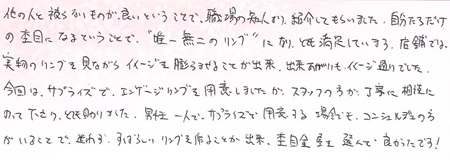 他の人と被らないものが良いということで、職場の知人より、紹介してもらいました。自分たちだけ
の杢目になるということで、"唯一無二のリング"になり、とても満足しています。店舗では、
実物のリングを見ながらイメージを膨らませることが出来、出来あがりも、イメージ通りでした。
今回は、サプライズで、エンゲージリングを用意しましたが、スタッフの方が、丁寧に相談に
のって下さり、とても助かりました。男性一人で、サプライズで用意する場合でも、コンシェルジュの方
がいることで、迷わず、すばらしいリングを作ることが出来、杢目金屋を選んで良かったです！